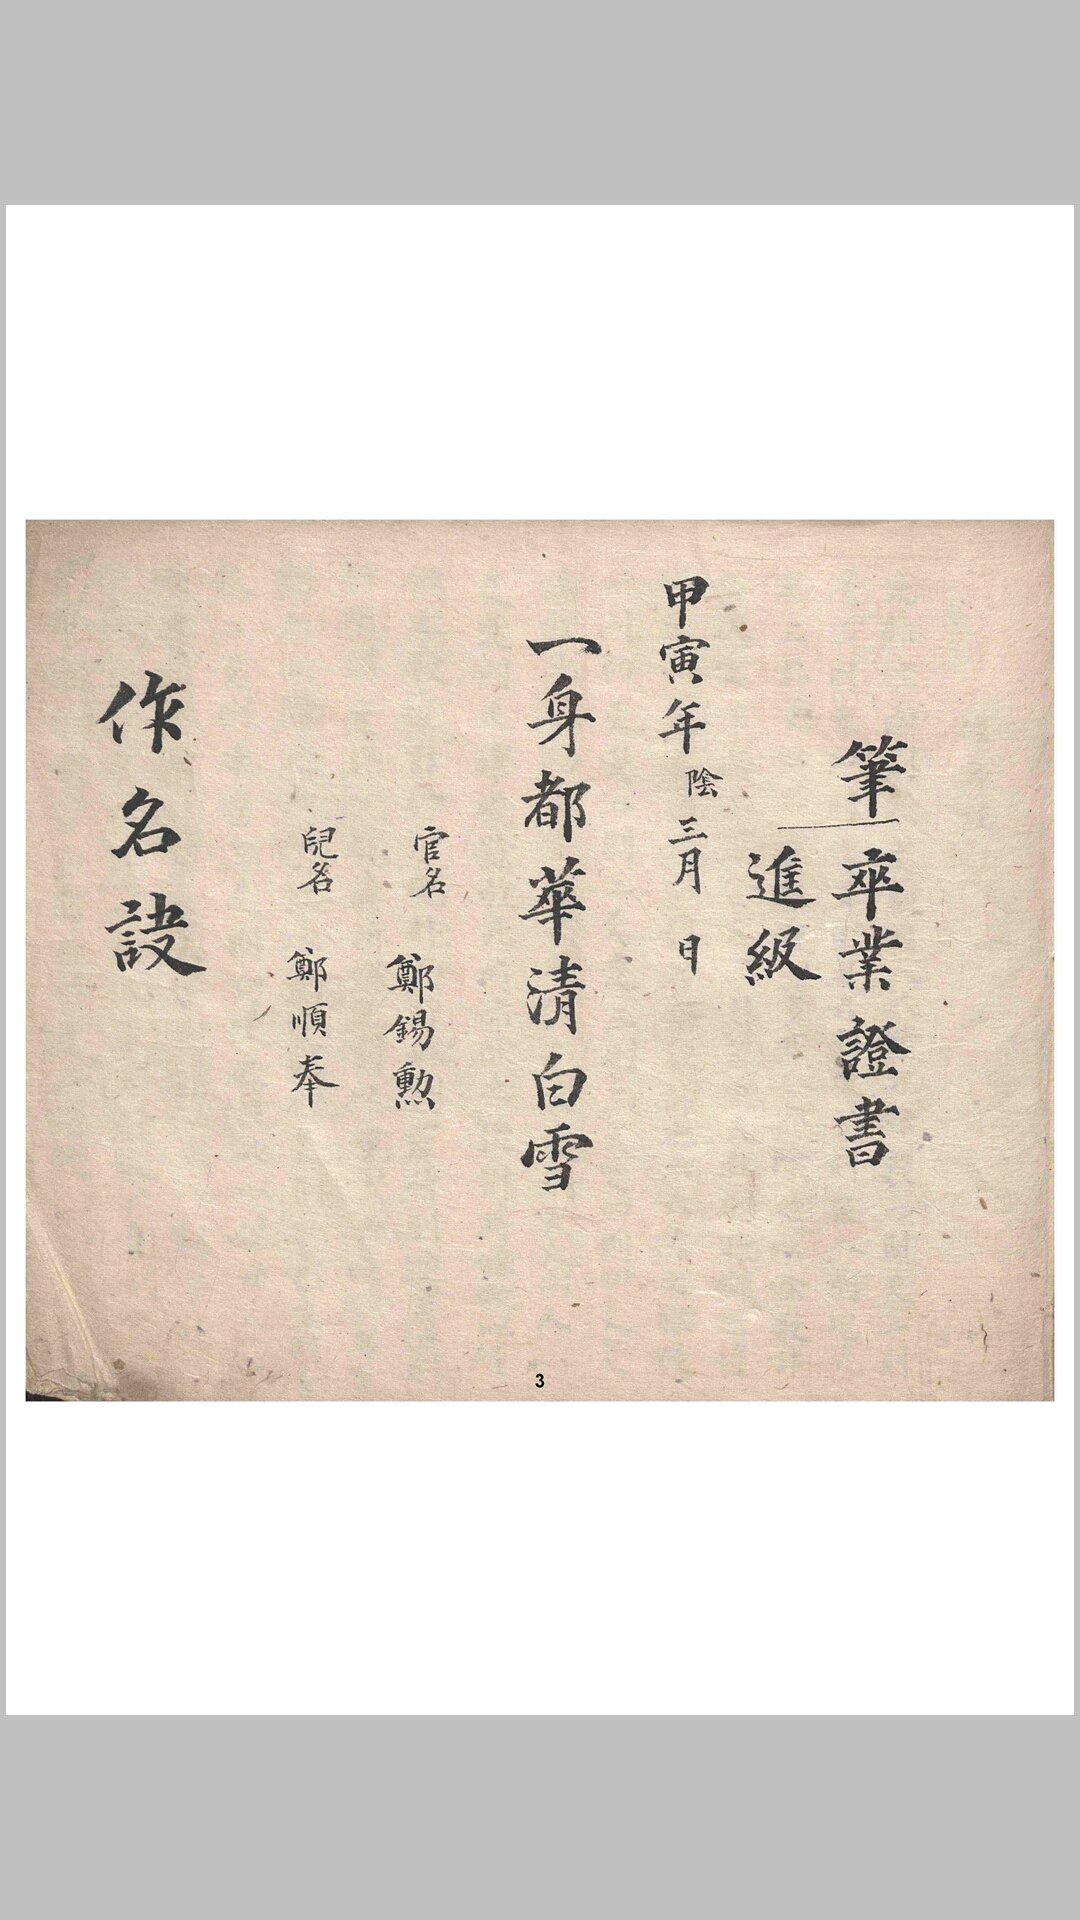 筆卒業證書
進級
甲寅年陰三月 日
一身都華清白雪
官名 鄭錫勲
兒名 鄭順奉
作名設
3